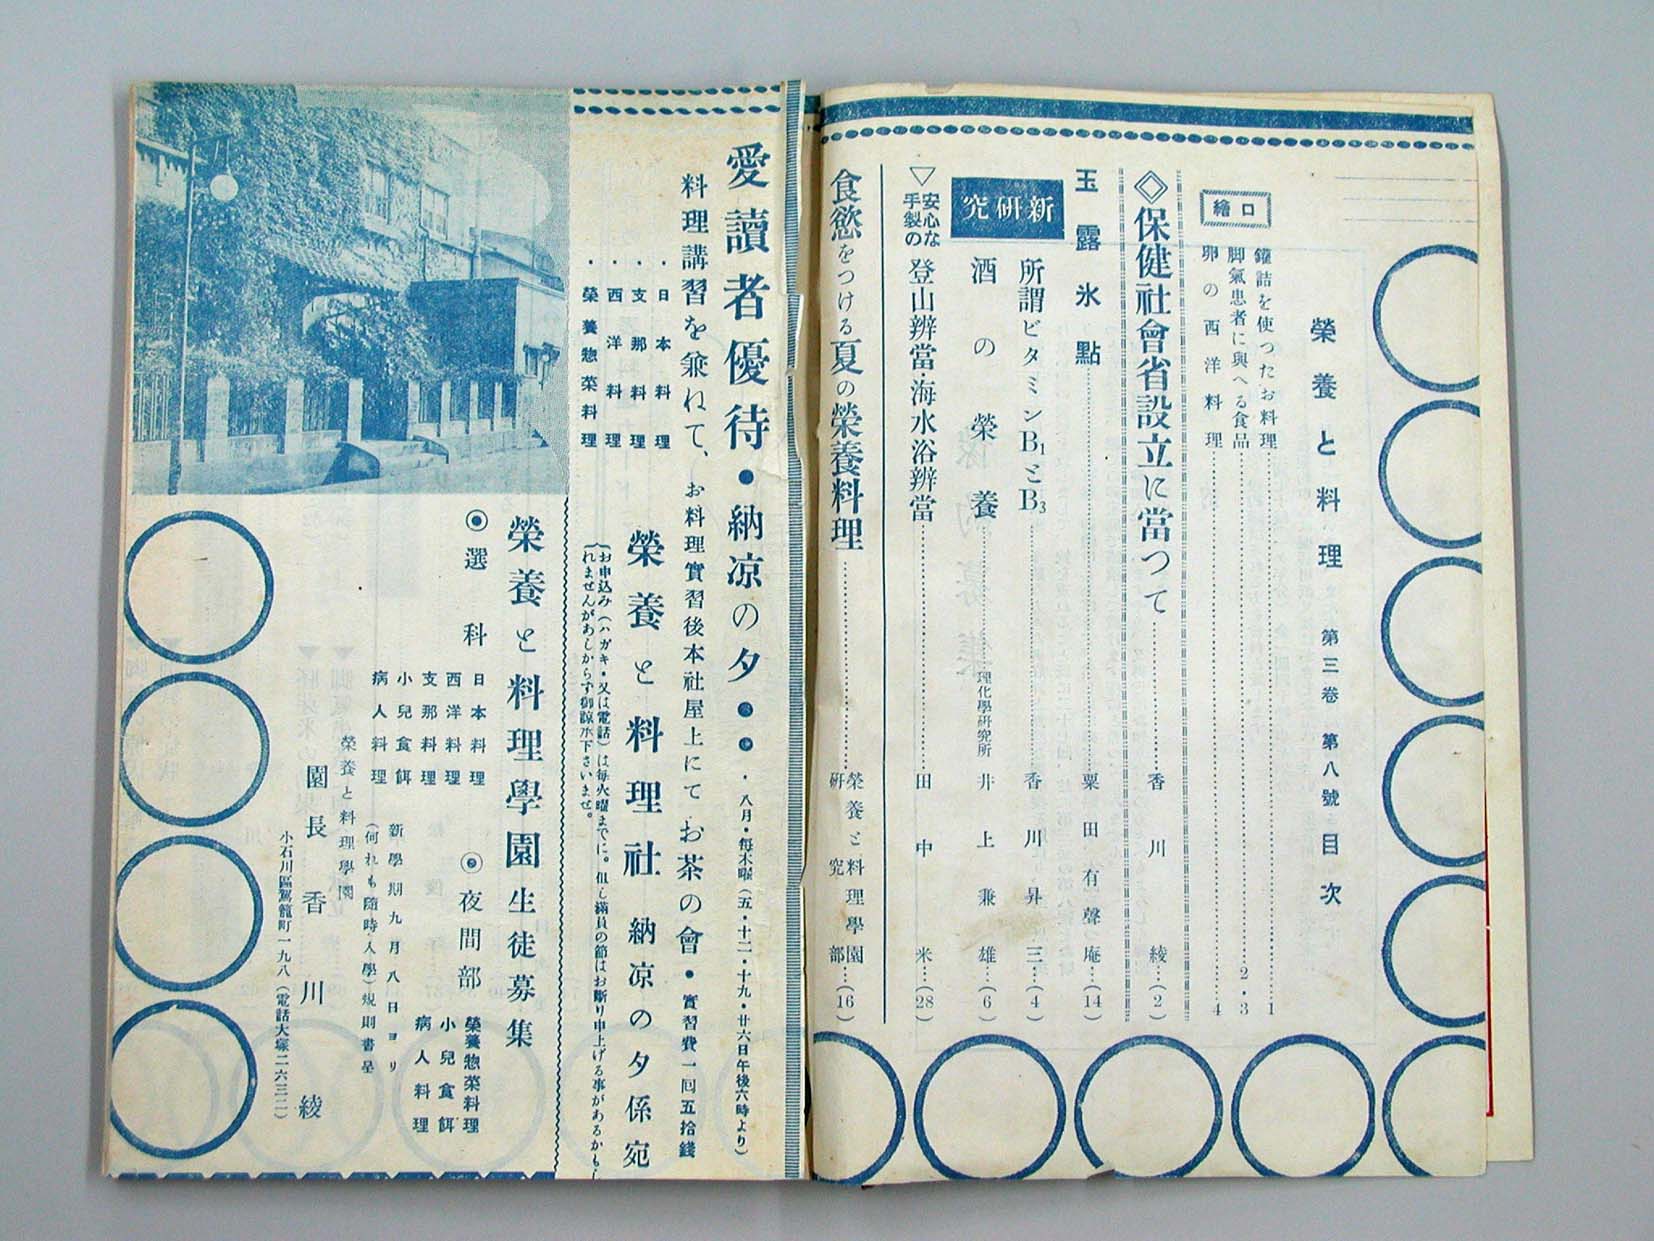 榮養と料理 第三卷 第八號 目次
口繪
鑵詰を使つたお料理…1
脚氣患者に與へる食品…2・3
卵の西洋料理…4
◇保健社會省設立に當つて…香川綾…(2)
玉露氷點…粟田有聲庵…(14)
新研究
所謂ビタミンB1とB3…香川昇三…(4)
酒の榮養…理化學研究所 井上兼雄…(6)
▽安心な手製の 登山辨當・海水浴辨當…田中米…(28)
食慾をつける夏の榮養料理…榮養と料理學園研究部…(16)
愛讀者優待・納凉の夕・・・八月・每木曜(五・十二・十九・廿六日午後六時より)
料理講習を兼ねて、お料理實習後本社屋上にてお茶の會・實習費一回五拾錢
・日本料理
・支那料理
・西洋料理
・榮養惣菜料理
榮養と料理社 納凉の夕係宛
(お申込み(ハガキ・又は電話)は每火曜までに。但し滿員の節はお斷り申上げる事があるかもし
れませんがあしからず御諒承下さいませ。
榮養と料理學園生徒募集
◉選科
日本料理
西洋料理
支那料理
小兒食餌
病人料理
◉夜間部
榮養惣菜料理
小兒食餌
病人料理
新學期九月八日ヨリ
(何れも隨時入學)規則書呈
榮養と料理學園
園長 香川綾
小石川區駕籠町一九八(電話大塚二六三二)